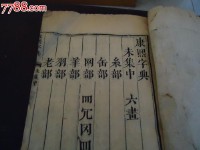 7788.com
康熙字典
未集中 六畫
糸部
缶部
网部 罒冗罓罒
羊部
羽部
老部